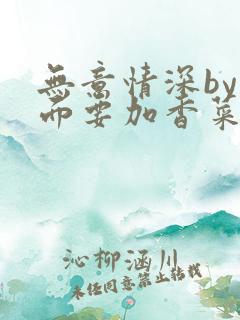 無意情深by
而要加香菜
沁柳涵川
未经同意禁止转载